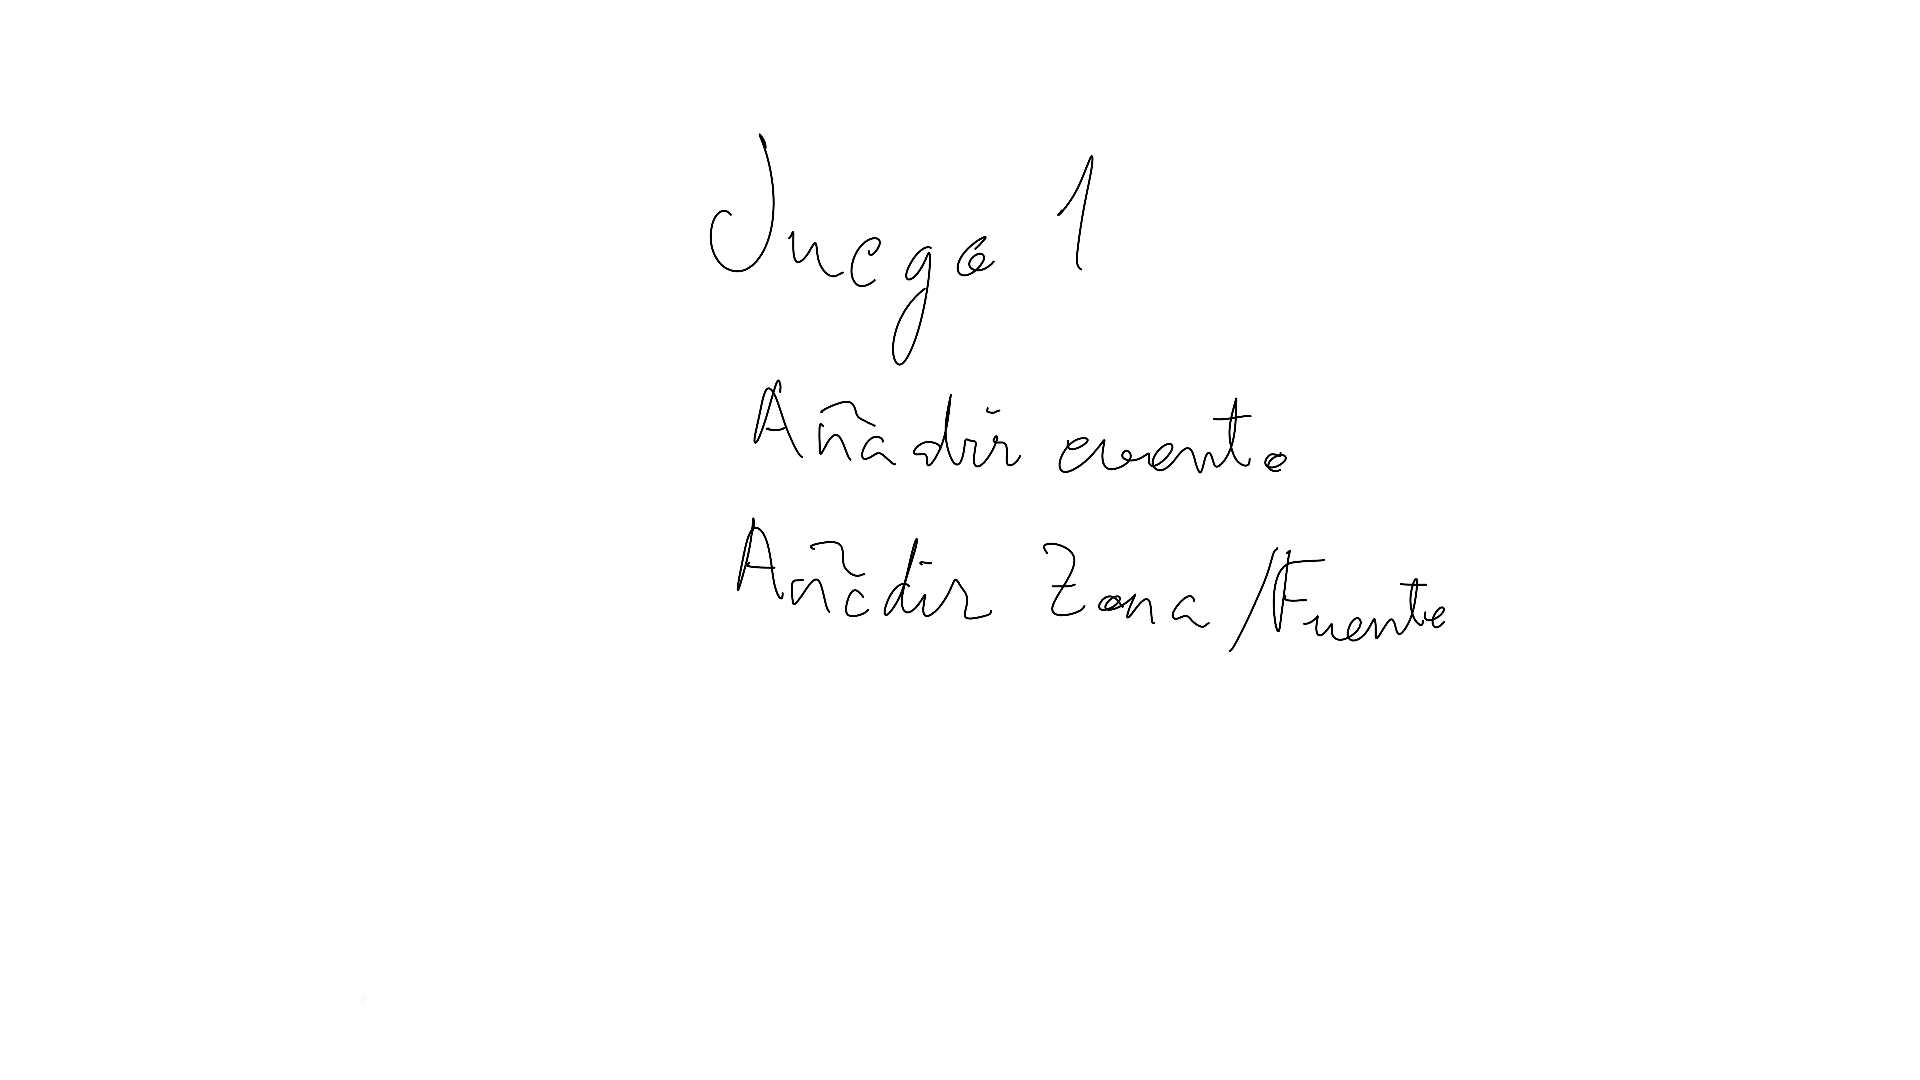 Juego 1
Añadir evento
Añadir Zona/Fuente